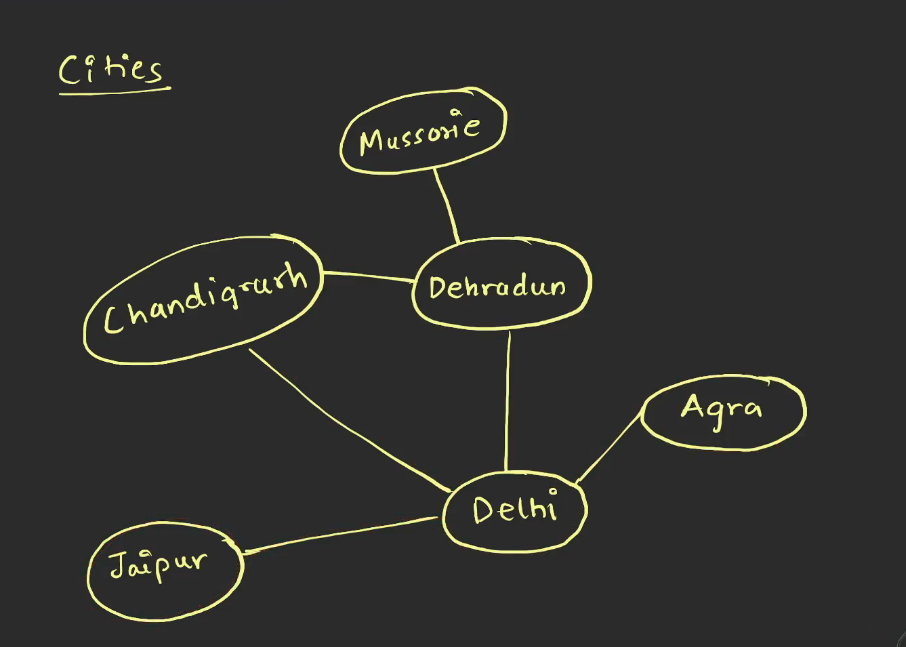 Cities
Mussorie
Chandigrarh
Dehradun
Agra
Delhi
Jaipur